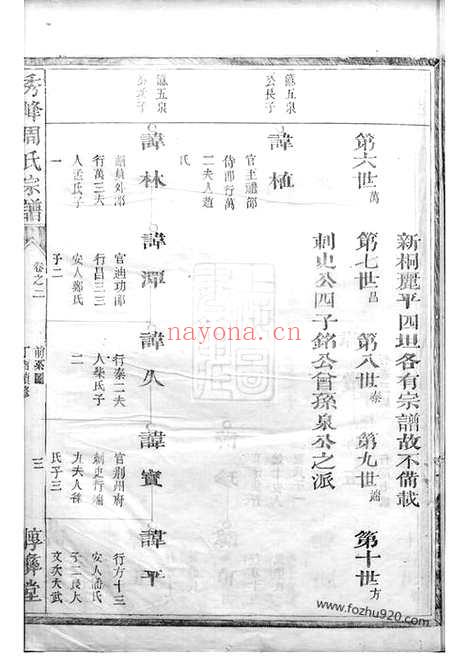 新桐麗平四坦各有宗譜故不備載
刺史公四子銘公曾孫泉公之派
第六世萬 第七世昌 第八世泰 第九世 第十世方
諱植
官至禮部
侍郎行萬
二夫人趙
氏
五泉
公長子
諱林
員外郎
行萬三夫
人孟氏子
一
諱潭
官迪功郎
行昌三三
安人鄭氏
子二
諱久
行泰二夫
人柴氏子
二
諱實
官荆州府
刺史行
夫人徐
氏子三
諱平
行方十三
安人潘氏
子二長大
文次大武
五泉
公次子
秀峰周氏宗譜
卷之二
前系圖
三
惇彝堂
nayona.cn
www.fozhu920.com